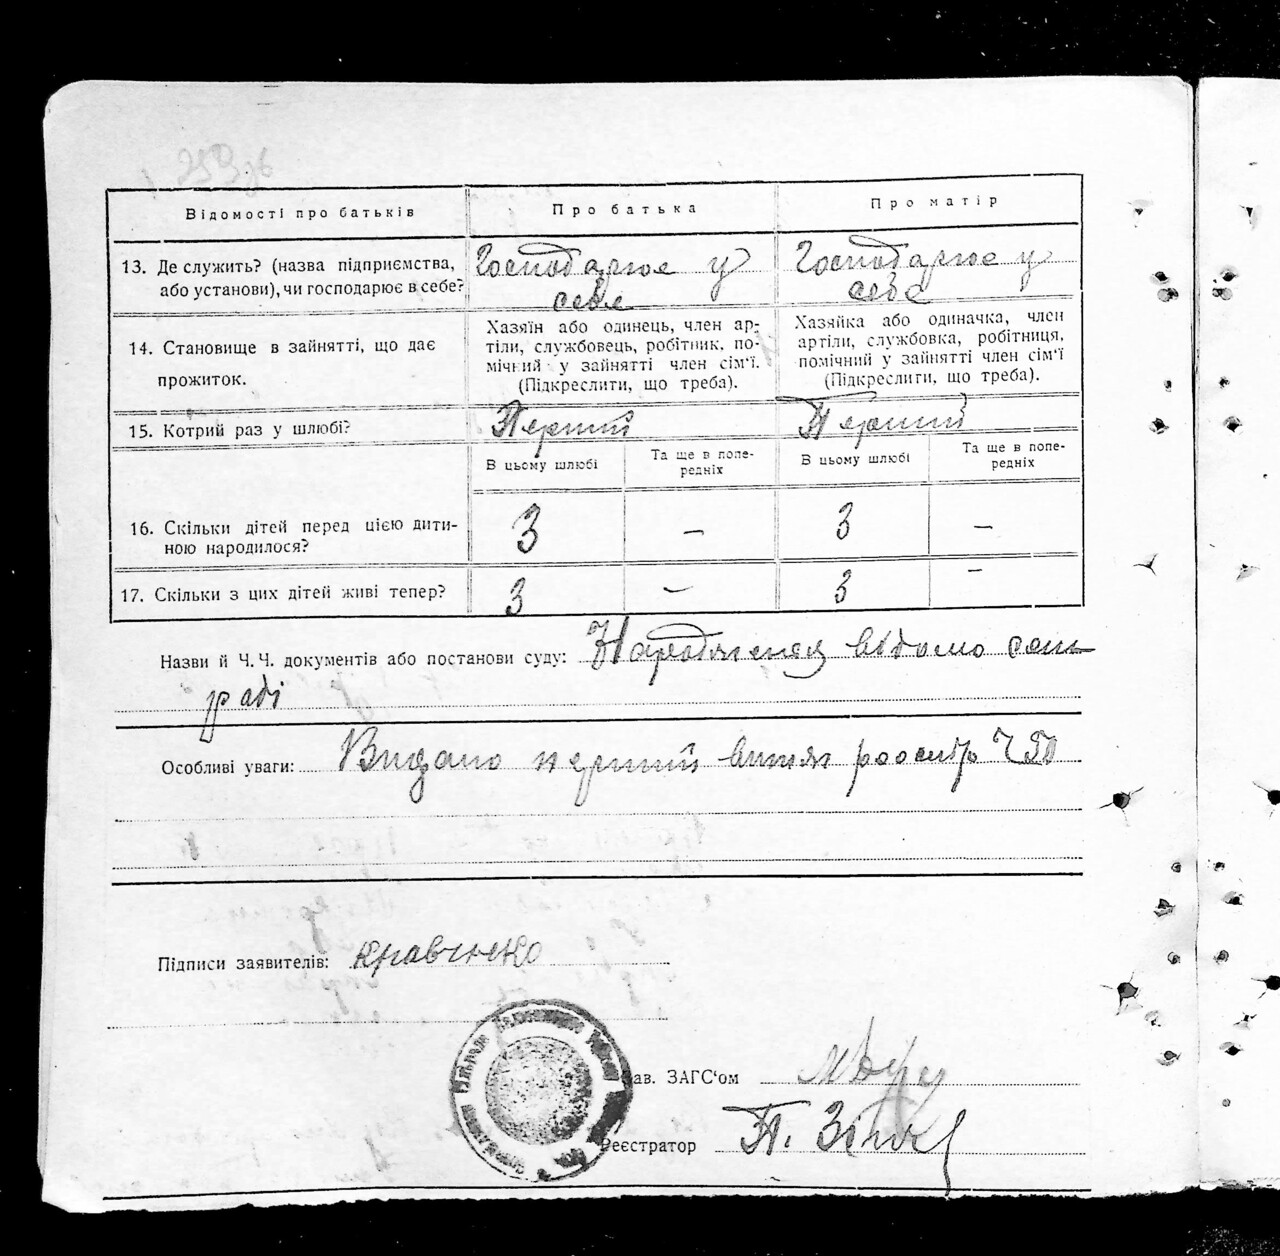 Відомості про батьків
Про батька
Про матір
13. Де служить? (назва підприємства,
або установи), чи господарює в себе?
Господарює у
себе
Господарює у
себе
14. Становище в зайнятті, що дає
прожиток.
Хазяїн або одинець, член ар-
тіли, службовець, робітник, по-
мічний у зайнятті член сім'ї.
(Підкреслити, що треба).
Хазяйка або одиначка, член
артіли, службовка, робітниця,
помічний у зайнятті член сім'ї
(Підкреслити, що треба).
15. Котрий раз у шлюбі?
Перший
Перший
В цьому шлюбі
Та ще в попе-
редніх
В цьому шлюбі
Та ще в попе-
редніх
16. Скільки дітей перед цією дити-
ною народилося?
3
—
3
—
17. Скільки з цих дітей живі тепер?
3
—
3
—
Назви й Ч.Ч. документів або постанови суду: Народження відомо сель
раді
Особливі уваги: Видано перший витяг Ч 50
Підписи заявителів: Кравченко
Зав. ЗАГС'ом
Реєстратор П.